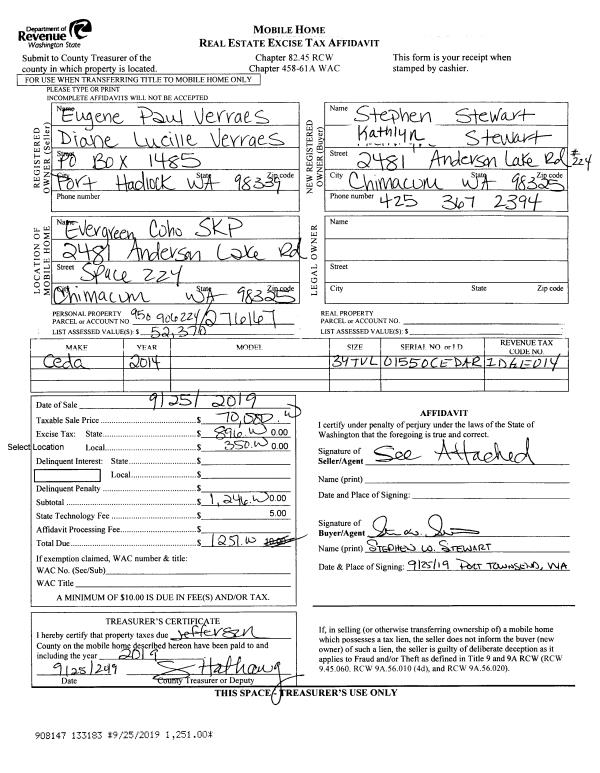 Department of
Revenue
Washington State
MOBILE HOME
REAL ESTATE EXCISE TAX AFFIDAVIT
Submit to County Treasurer of the
county in which property is located.
Chapter 82.45 RCW
Chapter 458-61A WAC
This form is your receipt when
stamped by cashier.
FOR USE WHEN TRANSFERRING TITLE TO MOBILE HOME ONLY
PLEASE TYPE OR PRINT
INCOMPLETE AFFIDAVITS WILL NOT BE ACCEPTED
REGISTERED OWNER (Seller)
Name Eugene Paul Verraes
Diane Lucille Verraes
Street PO Box 1485
City Port Hadlock State WA Zip code 98339
Phone number
NEW REGISTERED OWNER (Buyer)
Name Stephen Stewart
Kathlyn Stewart
Street 2481 Anderson Lake Rd #224
City Chimacum State WA Zip code 98325
Phone number 425 367 2394
LOCATION OF MOBILE HOME
Name Evergreen Coho SKP
2481 Anderson Lake Rd
Street Space 224
City Chimacum State WA Zip code 98325
LEGAL OWNER
Name
Street
City State Zip code
PERSONAL PROPERTY
PARCEL or ACCOUNT NO. 950 906224/276167
LIST ASSESSED VALUE(S): $ 52,370
REAL PROPERTY
PARCEL or ACCOUNT NO.
LIST ASSESSED VALUE(S): $
MAKE YEAR MODEL SIZE SERIAL NO. or I.D. REVENUE TAX CODE NO.
Ceda 2014 34TVL 01550CEDAR ID61E014
Date of Sale 9/25/2019
Taxable Sale Price $ 70,000.00
Excise Tax: State $ 896.00 0.00
Select Location Local $ 350.00 0.00
Delinquent Interest: State $
Local $
Delinquent Penalty $
Subtotal $ 1,246.00 0.00
State Technology Fee $ 5.00
Affidavit Processing Fee $
Total Due $ 1251.00 10.00
If exemption claimed, WAC number & title:
WAC No. (Sec/Sub)
WAC Title
A MINIMUM OF $10.00 IS DUE IN FEE(S) AND/OR TAX.
AFFIDAVIT
I certify under penalty of perjury under the laws of the State of
Washington that the foregoing is true and correct.
Signature of
Seller/Agent See Attached
Name (print)
Date and Place of Signing:
Signature of
Buyer/Agent
Name (print) STEPHEN W. STEWART
Date & Place of Signing: 9/25/19 PORT TOWNSEND, WA
TREASURER'S CERTIFICATE
I hereby certify that property taxes due Jefferson
County on the mobile home described hereon have been paid to and
including the year 2019
9/25/2019 S Hathaway
Date County Treasurer or Deputy
If, in selling (or otherwise transferring ownership of) a mobile home
which possesses a tax lien, the seller does not inform the buyer (new
owner) of such a lien, the seller is guilty of deliberate deception as it
applies to Fraud and/or Theft as defined in Title 9 and 9A RCW (RCW
9.45.060, RCW 9A.56.010 (4d), and RCW 9A.56.020).
THIS SPACE - TREASURER'S USE ONLY
908147 133183 *9/25/2019 1,251.00*